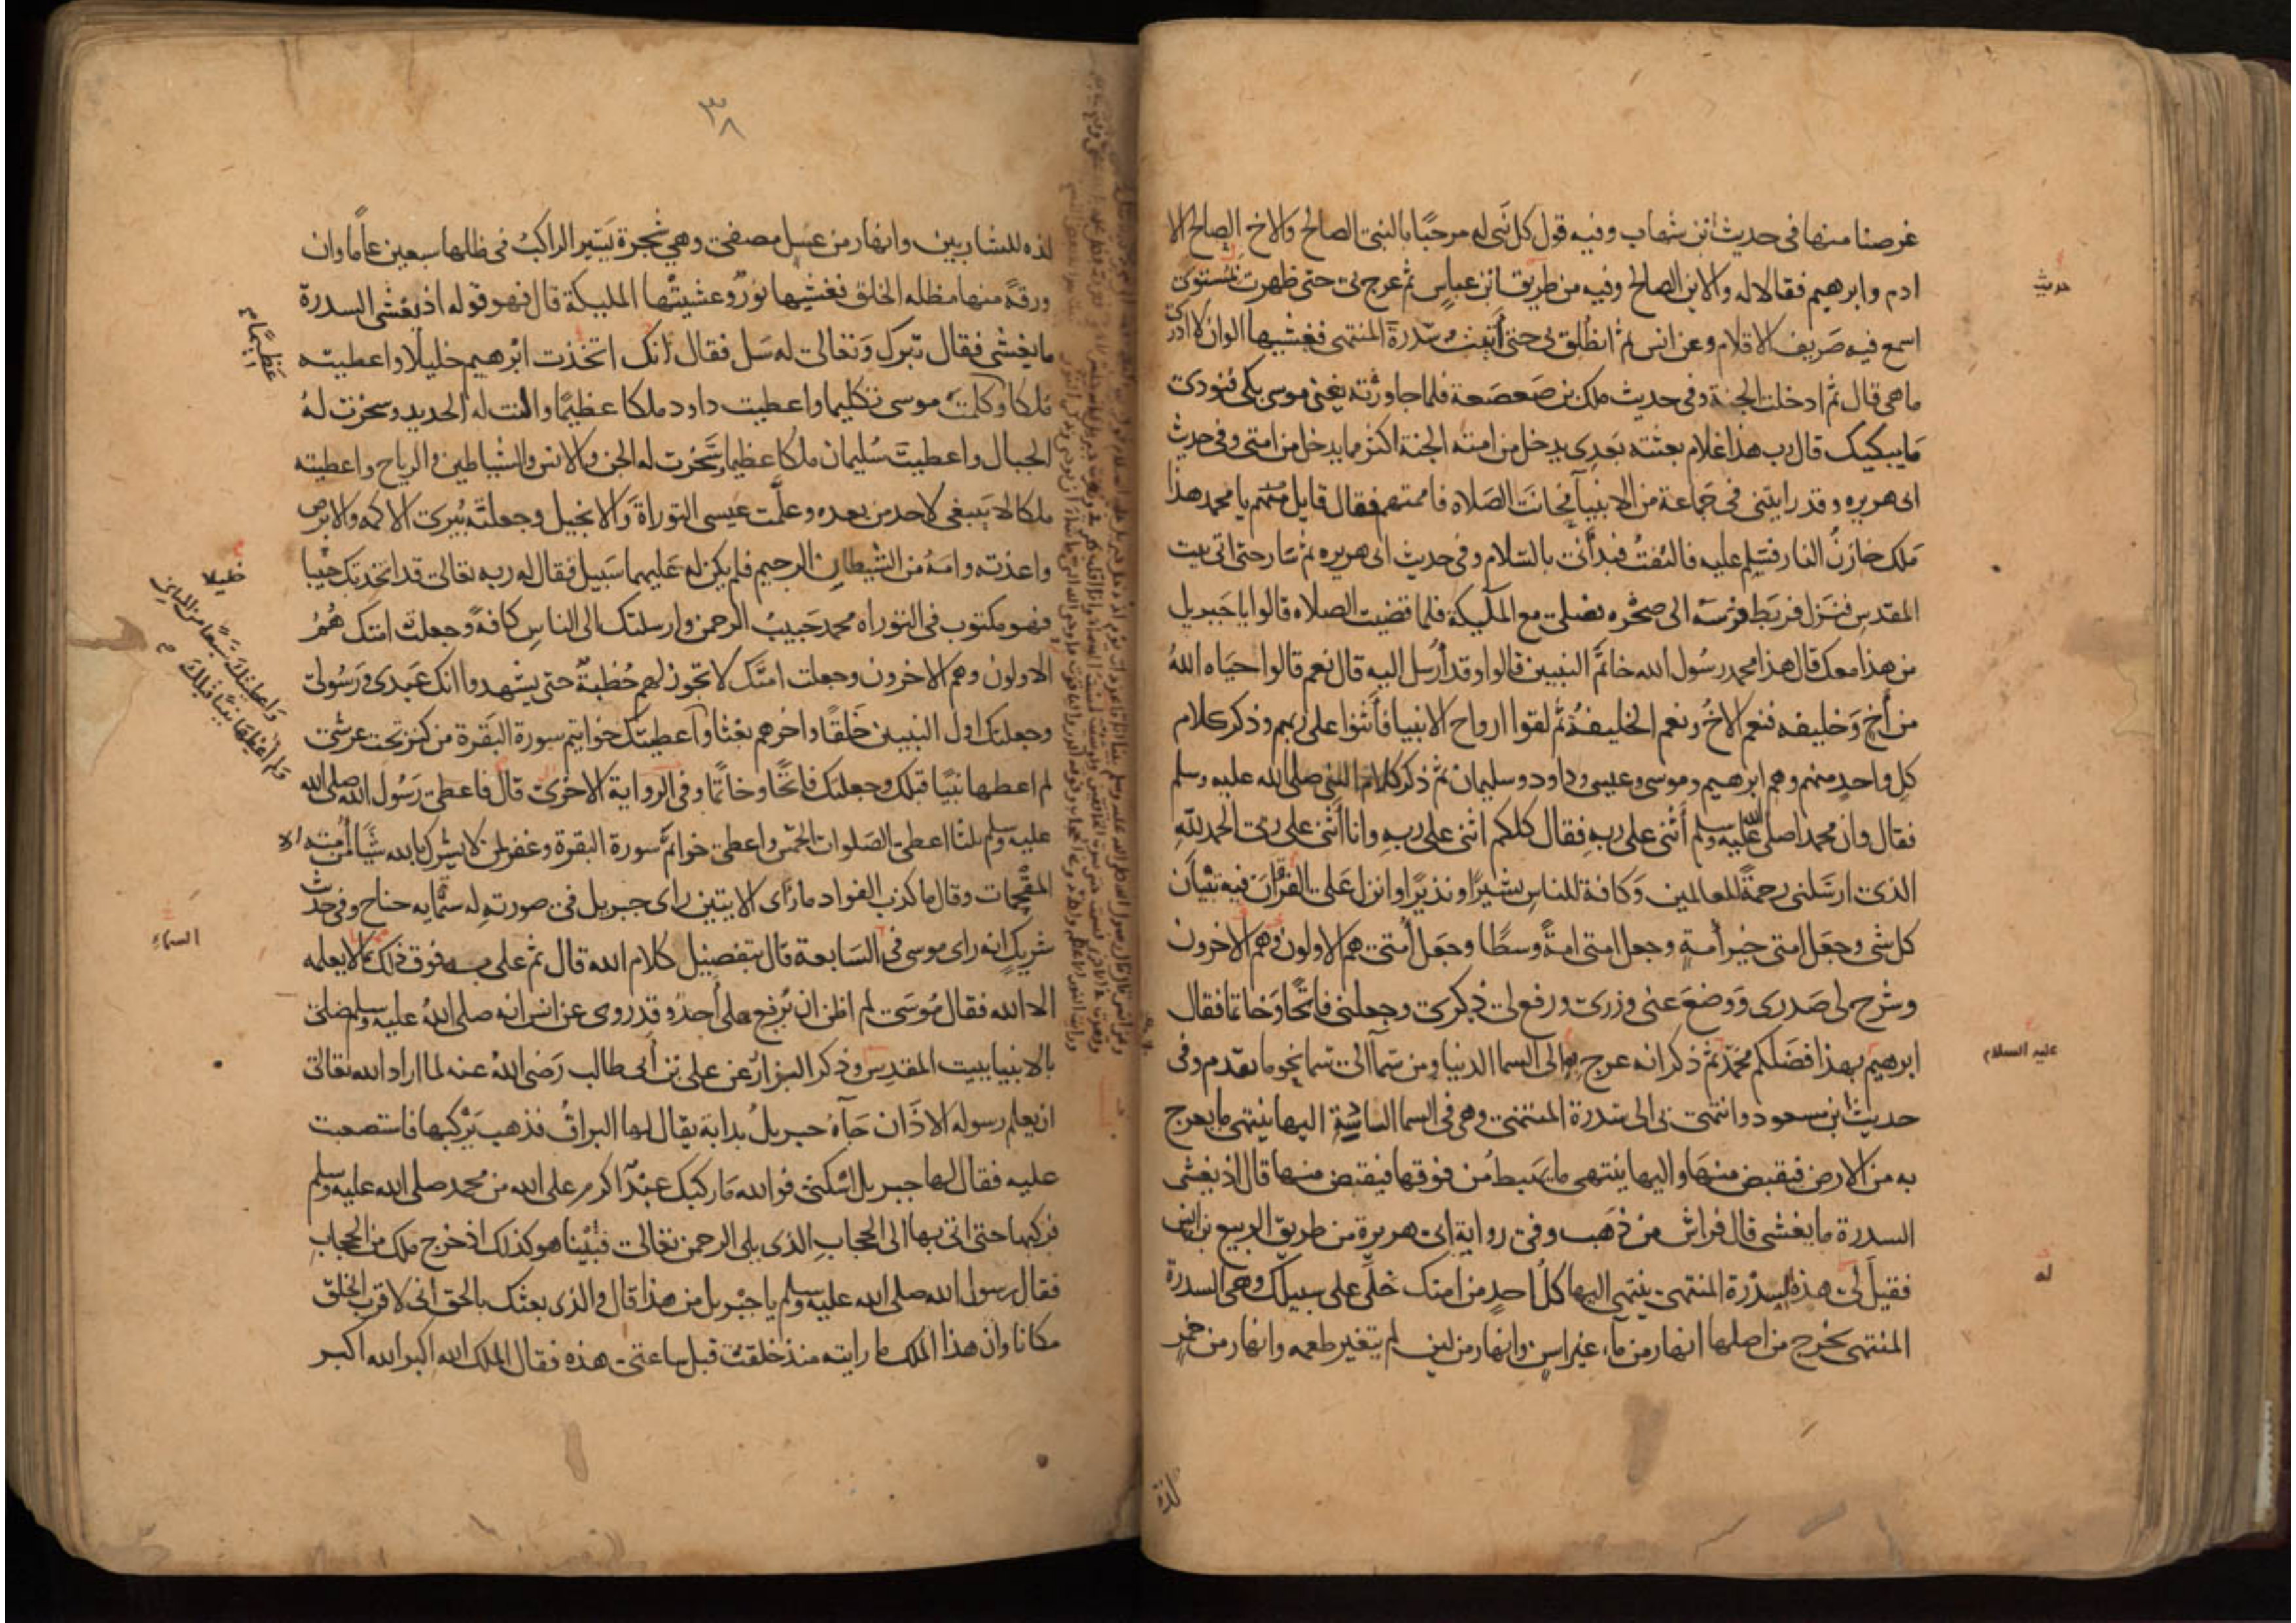 غرضنا منها في حديث ابن شهاب وفيه قول كل نبي له مرحبًا بالنبي الصالح والاخ الصالح الا
حديث
ادم وابرهيم فقالا له والابن الصالح وفيه من طريق ابن عباس ثم عرج بي حتى ظهرت لمستوى
اسمع فيه صريف الاقلام وعن انس ثم انطلق بي حتى أتيت سدرة المنتهى فغشيها الوان لا ادرى
ما هي قال ثم ادخلت الجنة وفي حديث ملك بن صعصعة فلما جاوزته يعني موسى بكى فنودي
ما يبكيك قال رب هذا غلام بعثته بعدي يدخل من امته الجنة اكثر مما يدخل من امتي وفي حديث
ابي هريره وقد رايتني في جماعة من الانبيآ فحانت الصلاه فاممتهم فقال قايل منهم يا محمد هذا
ملك خازن النار فسلم عليه فالتفتُ فبدأني بالسلام وفي حديث ابي هريره ثم سار حتى اتى بيت
المقدس فنزل فربط فرسه الى صخره فصلى مع الملآيكة فلما قضيت الصلاه قالوا يا جبريل
من هذا معك قال هذا محمد رسول الله خاتم النبيين قالوا وقد أرسل اليه قال نعم قالوا حياه اللهُ
من أخٍ وخليفه فنعم الاخُ ونعم الخليفةُ ثم لقوا ارواح الانبيا فأثنوا على ربهم وذكر كلام
كل واحدٍ منهم وهم ابرهيم وموسى وعيسى وداود وسليمان ثم ذكر كلام النبي صلى الله عليه وسلم
فقال وان محمدا صلى الله عليه وسلم أثنى على ربهِ فقال كلكم اثنى على ربهِ وانا أثني على ربي الحمد للّهِ
الذي ارسلني رحمةً للعالمين وكافة للناس بشيرًا ونذيرًا وانزل عَلي القرآن فيه تبيان
كل شي وجعل امتي خير أمةٍ وجعل امتي امةً وسطًا وجعل أمتي هم الاولون وهم الاخرون
وشرح لي صدري ووضع عني وزري ورفع لي ذكري وجعلني فاتحًا وخاتما فقال
ابرهيم بهذا فضلكم محمدٌ ثم ذكر انه عرج به الى السما الدنيا ومن سمآ الى سما نحو ما تقدم وفي
عليه السلام
حديث ابن مسعود وانتهى بي الى سدرة المنتهى وهي في السما السادسة اليها ينتهي ما يعرج
به من الارض فيقبض منها واليها ينتهي ما يهبط من فوقها فيقبض منها قال اذ يغشى
السدرة ما يغشى قال فراش من ذهب وفي رواية ابي هريرة من طريق الربيع بن انس
فقيل لي هذه السدرة المنتهى ينتهي اليها كلُّ احدٍ من امتك خلّى على سبيلك وهي السدرة
له
المنتهى يخرج من اصلها انهار من مآء غير اسنٍ وانهار من لبنٍ لم يتغير طعمه وانهار من خمرٍ
لذة
٣٨
لذه للشاربين وانهار من عسل مصفى وهي شجرة يسير الراكبُ في ظلها سبعين عامًا وان
ورقةً منها مظله الخلق فغشيها نورٌ وغشيتها المليكة قال فهو قوله اذ يغشى السدرة
ما يغشى فقال تبرك وتعالى له سل فقال انك اتخذت ابرهيم خليلًا واعطيته
عظيمًا
ملكا وكلمت موسى تكليما واعطيت داود ملكا عظيمًا والنت له الحديد وسخرت لهُ
الجبال واعطيت سليمان ملكا عظيما وسخرت له الجن والانس والشياطين والرياح واعطيته
ملكا لا ينبغي لاحد من بعده وعلَّمت عيسى التوراةَ والانجيل وجعلته يُبرى الاكمه والابرص
واعذته وامَّهُ من الشيطان الرجيم فلم يكن له عليهما سبيل فقال له ربه تعالى قد اتخذتك حبيبا
خليلا
فهو مكتوب في التوراه محمد حبيبُ الرحمن وارسلتك الى الناس كافةً وجعلتُ امتك همُ
الاولون وهم الاخرون وجعلت امتَك لا تجوز لهم خُطبةٌ حتى يشهدوا انك عبدي ورسولي
واعطيتك سبعًا من المثاني
ولم أعطها نبيًا قبلك
وجعلتك اول النبيين خلقًا واخرهم بعثا وأعطيتك خواتيم سورة البقرة من كنز تحت عرشي
لم اعطها نبيًا قبلك وجعلتك فاتحًا وخاتمًا وفي الرواية الاخرى قال فاعطي رسول الله صلى الله
عليه وسلم ثلثا اعطي الصلوات الخمس واعطي خواتم سورة البقرة وغفر لمن لا يشرك بالله شيًا من أمته
المقحمات وقال ما كذب الفواد ما رأى الايتين راى جبريل في صورته له ستمايه جناح وفي حديث
شريك انه راى موسى في السابعة قال بتفضيل كلام الله قال ثم علي به فوق ذلك بما لا يعلمه
السماء
الا الله فقال موسى لم اظن ان يُرفع علي أحدٌ وقد روى عن انس انه صلى اللهُ عليه وسلم صلى
بالانبيا ببيت المقدس وذكر البزار عن علي بن أبي طالب رضي اللهُ عنه لما اراد الله تعالى
ان يعلم رسوله الاذان جآهُ جبريلُ بدابة يقال لها البراقُ فذهب يركبها فاستصعبت
عليه فقال لها جبريل اسكني فوالله ما ركبك عبدٌ اكرم على الله من محمد صلى الله عليه وسلم
فركبها حتى اتى بها الى الحجابِ الذي يلي الرحمن تعالى فبينا هو كذلك اذ خرج ملك من الحجابِ
فقال رسول الله صلى الله عليه وسلم يا جبريل من هذا قال والذي بعثك بالحق اني لاقرب الخلق
مكانا وان هذا الملك ما رايته منذ خلقتُ قبل ساعتي هذه فقال الملك الله اكبر الله اكبر